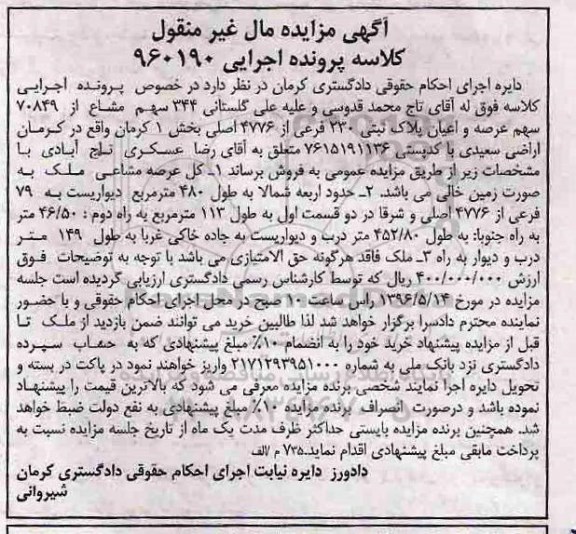 آگهی مزایده مال غیر منقول
کلاسه پرونده اجرایی ۹۶۰۱۹۰
دایره اجرای احکام حقوقی دادگستری کرمان در نظر دارد در خصوص پرونده اجرایی
کلاسه فوق له آقای تاج محمد قدوسی و علیه علی گلستانی ۳۴۴ سهم مشاع از ۷۰۸۴۹
سهم عرصه و اعیان پلاک ثبتی ۲۳۰ فرعی از ۴۷۷۶ اصلی بخش ۱ کرمان واقع در کرمان
اراضی سعیدی با کدپستی ۷۶۱۵۱۹۱۱۳۶ متعلق به آقای رضا عسکری تاج آبادی با
مشخصات زیر از طریق مزایده عمومی به فروش برساند ۱ـ کل عرصه مشاعی ملک به
صورت زمین خالی می باشد. ۲ـ حدود اربعه شمالا به طول ۴۸۰ مترمربع دیواریست به ۷۹
فرعی از ۴۷۷۶ اصلی و شرقا در دو قسمت اول به طول ۱۱۳ مترمربع به راه دوم : ۴۶/۵۰ متر
به راه جنوبا: به طول ۴۵۲/۸۰ متر درب و دیواریست به جاده خاکی غربا به طول ۱۴۹ متر
درب و دیوار به راه ۳ـ ملک فاقد هرگونه حق الامتیازی می باشد با توجه به توضیحات فوق
ارزش ۴۰۰/۰۰۰/۰۰۰ ریال که توسط کارشناس رسمی دادگستری ارزیابی گردیده است جلسه
مزایده در مورخ ۱۳۹۶/۵/۱۴ راس ساعت ۱۰ صبح در محل اجرای احکام حقوقی و با حضور
نماینده محترم دادسرا برگزار خواهد شد لذا طالبین خرید می توانند ضمن بازدید از ملک تا
قبل از مزایده پیشنهاد خرید خود را به انضمام ۱۰٪ مبلغ پیشنهادی که به حساب سپرده
دادگستری نزد بانک ملی به شماره واریز خواهند نمود در پاکت در بسته و
تحویل دایره اجرا نمایند شخصی برنده مزایده معرفی می شود که بالاترین قیمت را پیشنهاد
نموده باشد و درصورت انصراف برنده مزایده ۱۰٪ مبلغ پیشنهادی به نفع دولت ضبط خواهد
شد. همچنین برنده مزایده بایستی حداکثر ظرف مدت یک ماه از تاریخ جلسه مزایده نسبت به
پرداخت مابقی مبلغ پیشنهادی اقدام نماید.۷۳۵ م /الف
دادورز دایره نیابت اجرای احکام حقوقی دادگستری کرمان
شیروانی